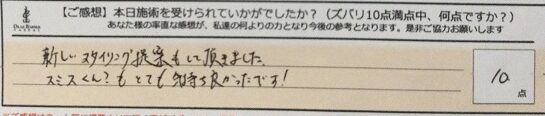 【ご感想】本日施術を受けられていかがでしたか？（ズバリ10点満点中、何点ですか？）
あなた様の率直な感想が、私達の何よりの力となり今後の参考となります。是非ご協力お願いします
新しいスタイリング提案もして頂きました。
スミスくん？もとても気持ち良かったです！
10
点